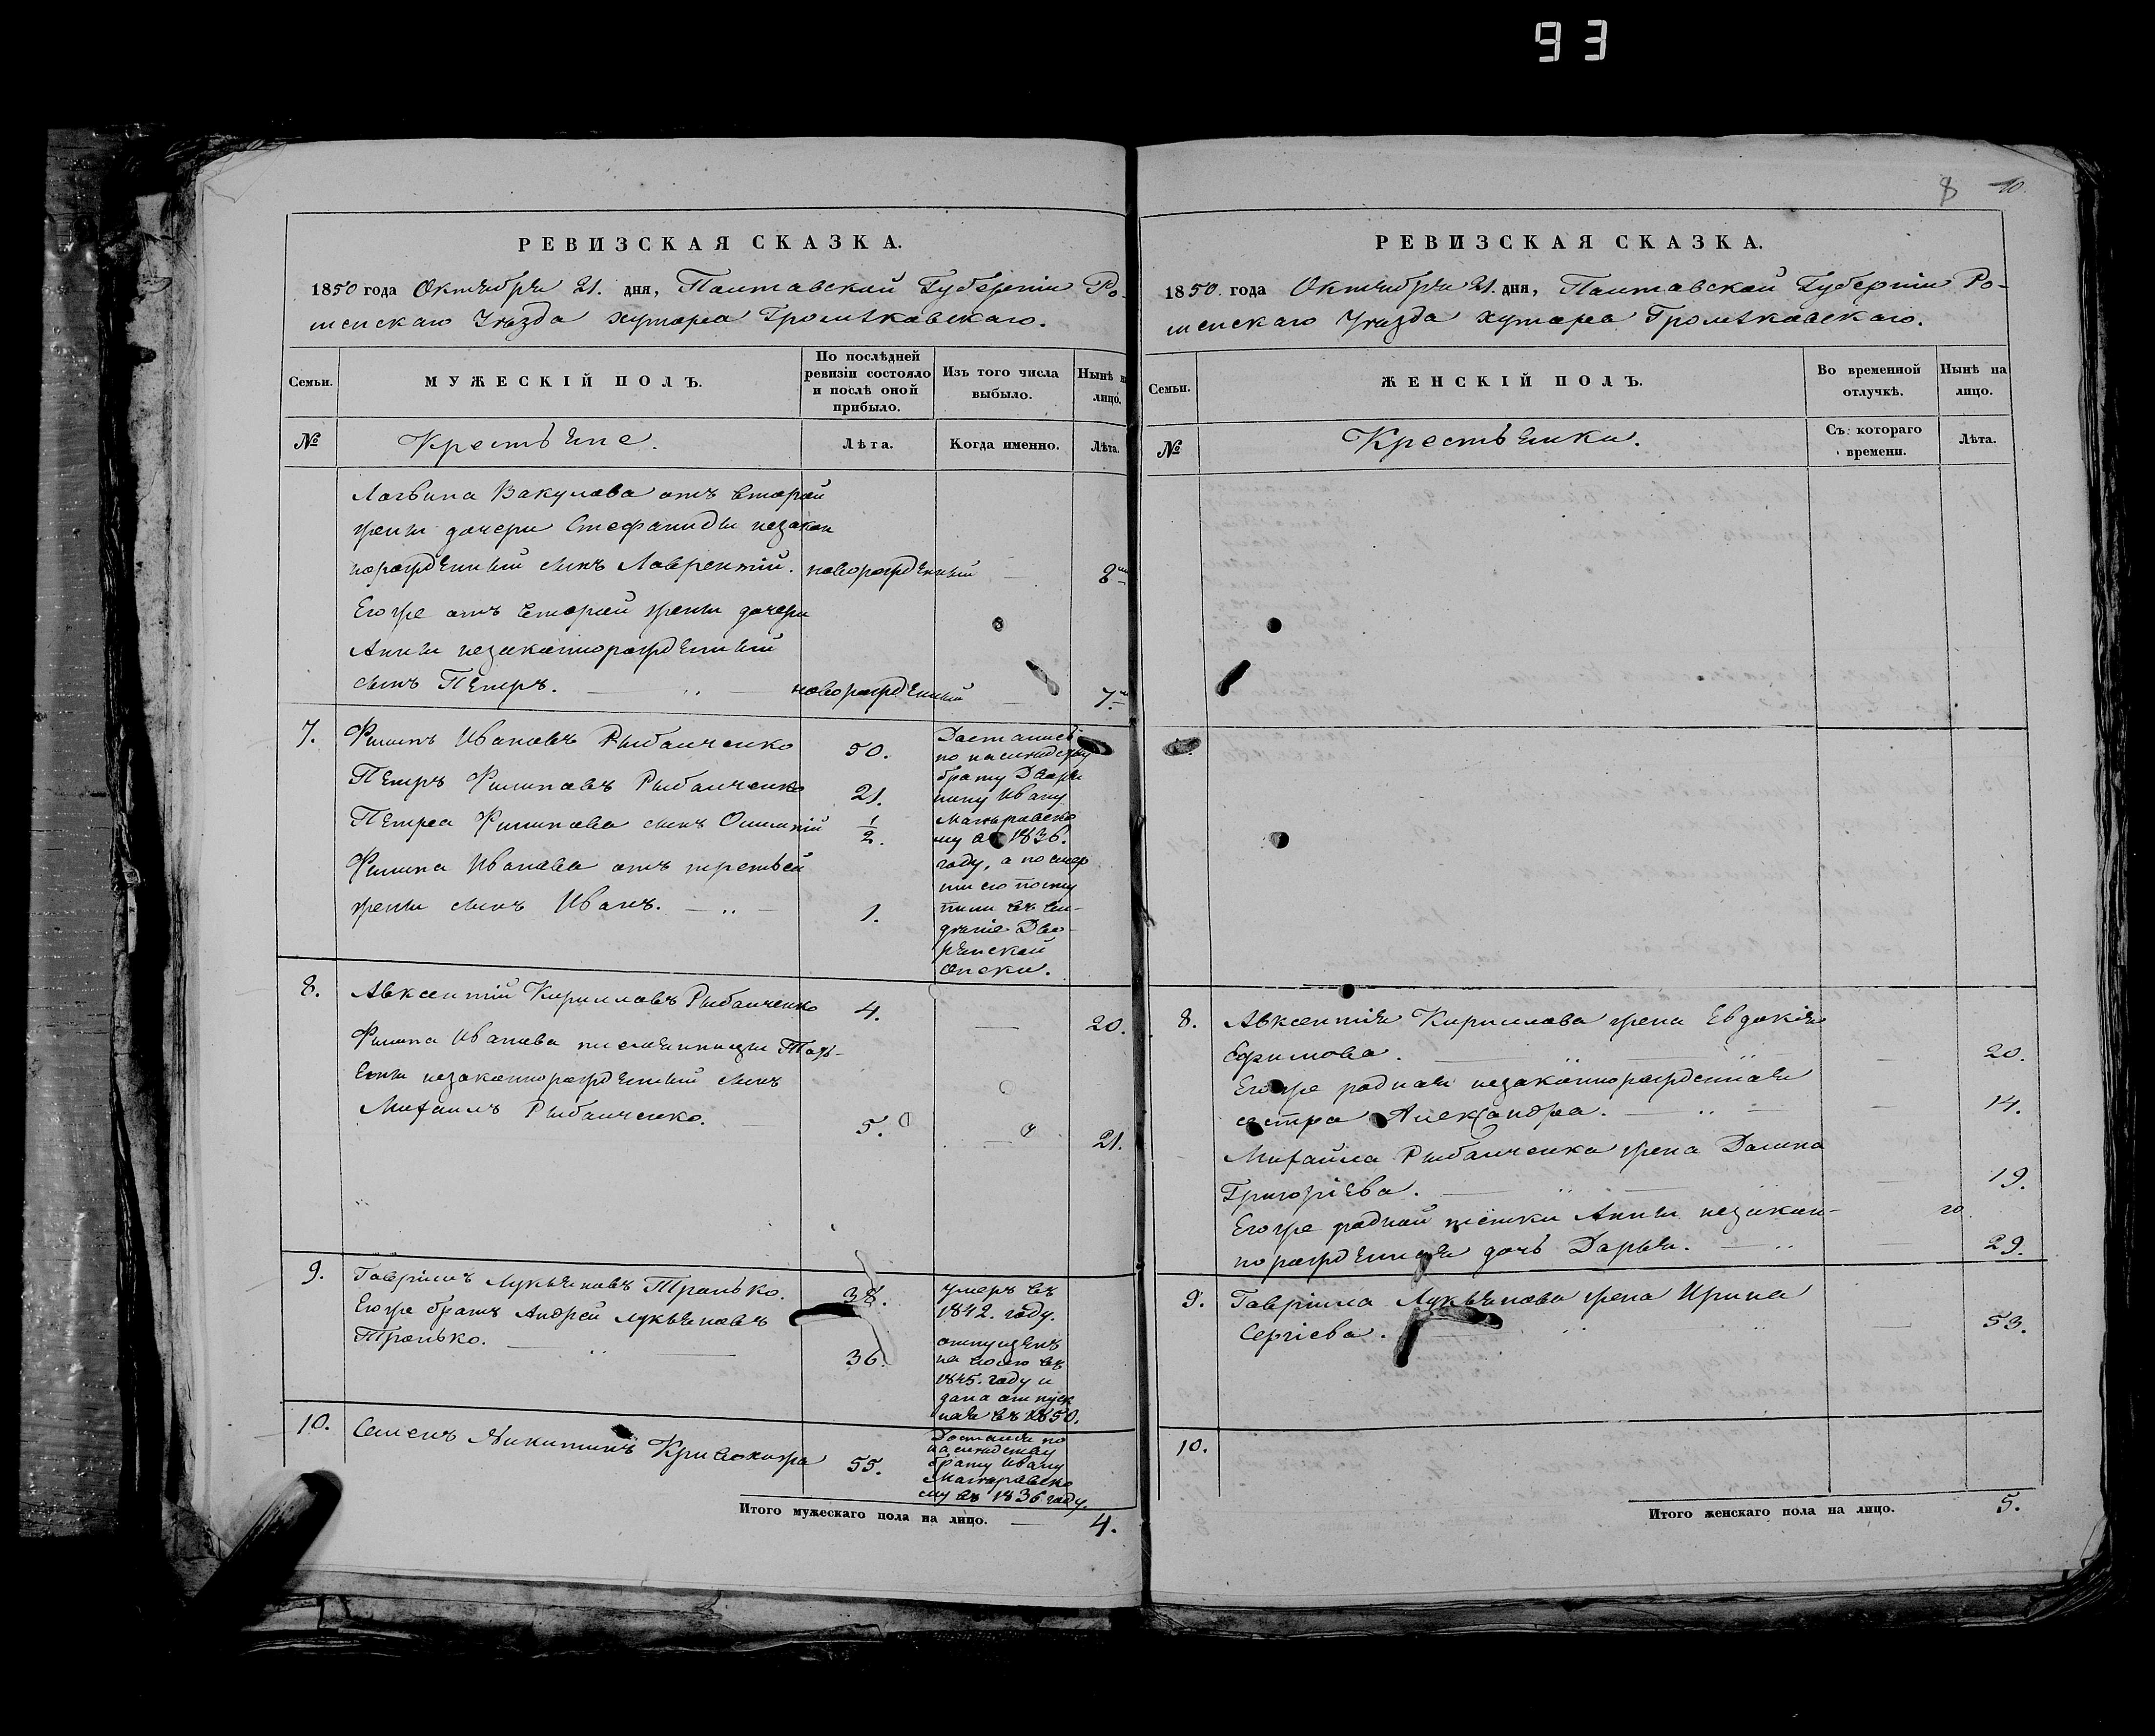 93
8 10
РЕВИЗСКАЯ СКАЗКА.
1850 года Октября 21. дня, Полтавской Губерніи Ро-
менскаго Уѣзда хутора Громѣковскаго.
Семьи.
МУЖЕСКІЙ ПОЛЪ.
По послѣдней
ревизіи состояло
и послѣ оной
прибыло.
Изъ того числа
выбыло.
Нынѣ на
лицо.
№
Крестьяне.
Лѣта.
Когда именно.
Лѣта.
Логвина Вакулова отъ второй
жены дочери Стефаниды незакон
норожденный сынъ Лаврентій. новорожденный — 8
Его же отъ второй жены дочери
Анны незаконнорожденный
сынъ Петръ. — новорожденный — 7.
7. Филипъ Ивановъ Рыбалченко 50.
Петръ Филиповъ Рыбалченко 21.
Петра Филипова сынъ 1/2.
Филипа Иванова отъ третьей
жены сынъ Иванъ. — 1.
Достались
по наследству
брату Дворя
нину Ивану
му въ 1836.
году, а по смер
ти его посту
пили въ вѣ-
дѣніе Дво-
рянской
опеки.
8. Авксентій Кирилловъ Рыбалченко 4. — 20.
Филипа Иванова племянницы Тать-
яны незаконнорожденный сынъ
Михаилъ Рыбалченко. 5. — 21.
9. Гавріилъ Лукьяновъ Тронько. 38. умеръ въ
1842. году.
Его же братъ Андрей Лукьяновъ
Тронько. — 36. отпущенъ
на волю въ
1845. году и
дана отпуск
ная въ 1850.
10. Семенъ Никитинъ Кривокожа 55. Достался по
наследству
брату Ивану
му въ 1836 году.
Итого мужескаго пола на лицо. — 4.
РЕВИЗСКАЯ СКАЗКА.
1850. года Октября 21. дня, Полтавской Губерніи Ро-
менскаго Уѣзда хутора Громѣковскаго.
Семьи.
ЖЕНСКІЙ ПОЛЪ.
Во временной
отлучкѣ.
Нынѣ на
лицо.
№
Крестьянки.
Съ котораго
времени.
Лѣта.
8. Авксентія Кирилова жена Евдокія
Ефимова. — 20.
Его же родная незаконнорожденная
сестра Александра. — 14.
Михайла Рыбалченка жена Домна
Григоріева. — 19.
Его же родной тётки Анны незакон-
норожденная дочь Дарья. — 29.
9. Гавріила Лукьянова жена Ирина
Сергіева. — 53.
10.
Итого женскаго пола на лицо. 5.